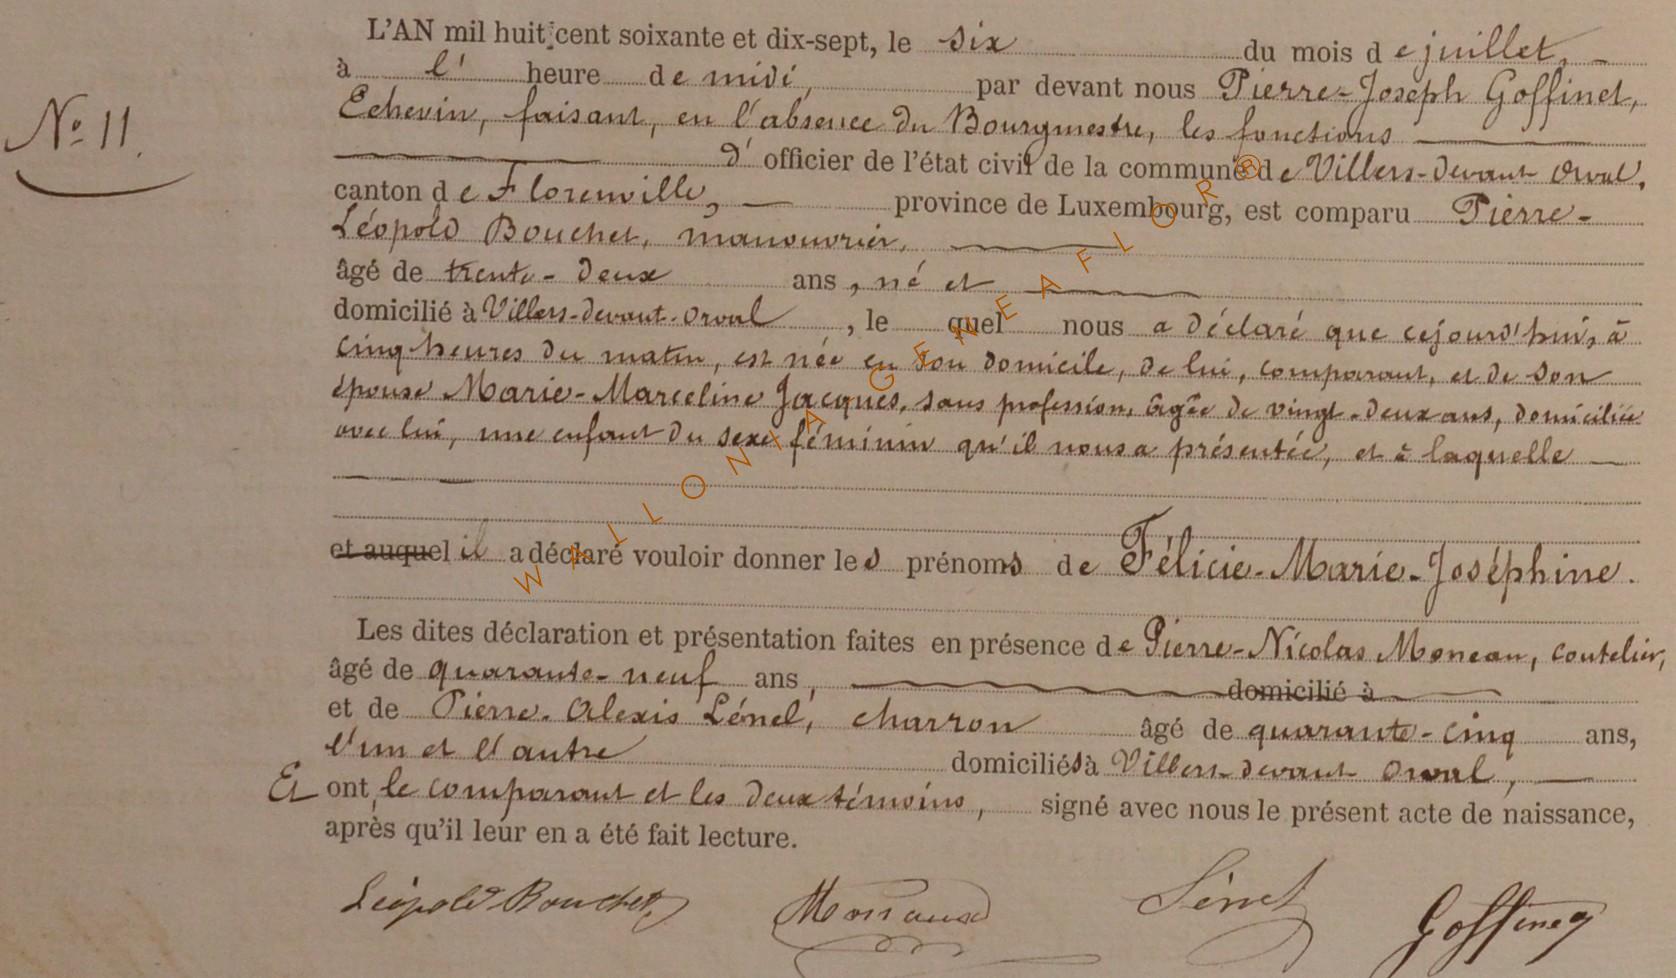 L'AN mil huit cent soixante et dix-sept, le six du mois de juillet,
à l' heure de midi, par devant nous Pierre-Joseph Goffinet,
Nº 11.
Echevin, faisant, en l'absence du Bourgmestre, les fonctions
d' officier de l'état civil de la commune de Villers-devant-Orval,
canton de Florenville, province de Luxembourg, est comparu Pierre-
Léopold Bouchet, manouvrier,
âgé de trente-deux ans, né et
domicilié à Villers-devant-Orval, le quel nous a déclaré que cejourd'hui, à
cinq heures du matin, est née en son domicile, de lui, comparant, et de son
épouse Marie-Marceline Jacques, sans profession, âgée de vingt-deux ans, domiciliée
avec lui, une enfant du sexe féminin qu'il nous a présentée, et à laquelle
et auquel il a déclaré vouloir donner les prénoms de Félicie-Marie-Joséphine.
Les dites déclaration et présentation faites en présence de Pierre-Nicolas Moneau, coutelier,
âgé de quarante-neuf ans, domicilié à
et de Pierre-Alexis Lénel, charron âgé de quarante-cinq ans,
l'un et l'autre domiciliés à Villers-devant-Orval,
Et ont, le comparant et les deux témoins, signé avec nous le présent acte de naissance,
après qu'il leur en a été fait lecture.
Léopold Bouchet Goffinet
WALLONIA GENEAFLOR®